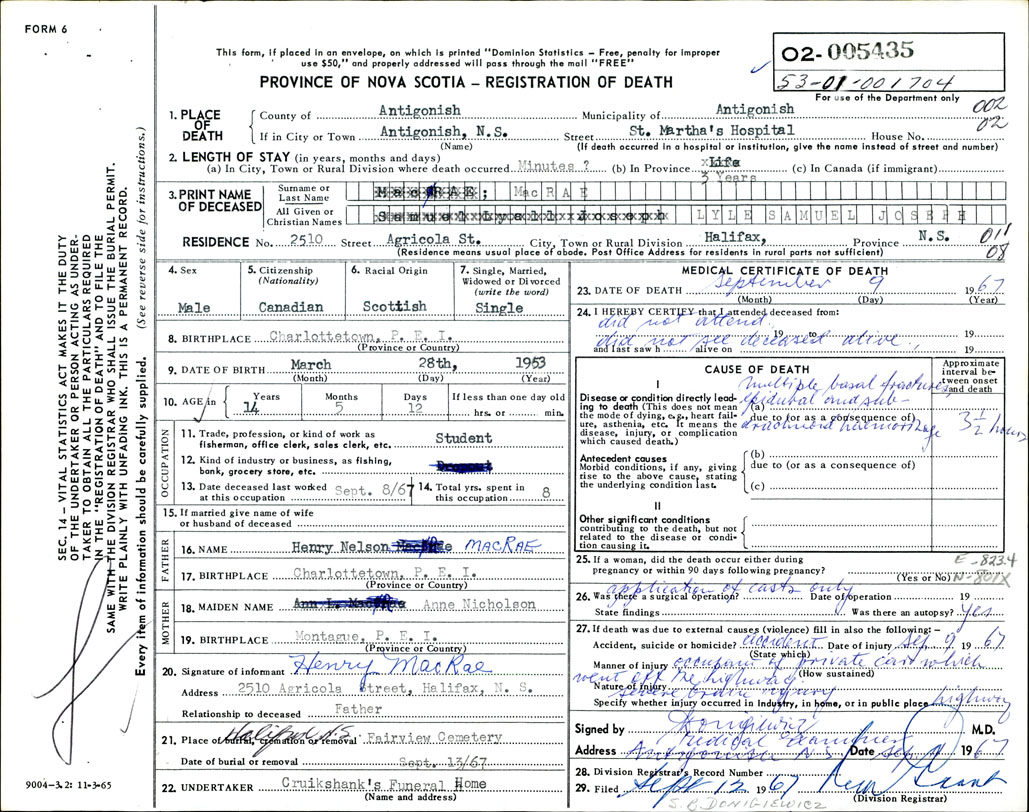 FORM 6
This form, if placed in an envelope, on which is printed "Dominion Statistics – Free, penalty for improper
use $50," and properly addressed will pass through the mail "FREE"
PROVINCE OF NOVA SCOTIA – REGISTRATION OF DEATH
02-005435
53-01-001704
For use of the Department only
002
02
1. PLACE OF DEATH
County of Antigonish Municipality of Antigonish
If in City or Town Antigonish, N.S. Street St. Martha's Hospital House No.
(Name) (If death occurred in a hospital or institution, give the name instead of street and number)
2. LENGTH OF STAY (in years, months and days)
(a) In City, Town or Rural Division where death occurred Minutes ? (b) In Province Life (c) In Canada (if immigrant)
3 Years
3. PRINT NAME OF DECEASED
Surname or Last Name MacRAE; MacRAE
All Given or Christian Names Samuel Lyall Joseph LYLE SAMUEL JOSEPH
RESIDENCE No. 2510 Street Agricola St. City, Town or Rural Division Halifax, Province N.S.
(Residence means usual place of abode. Post Office Address for residents in rural parts not sufficient)
011
08
4. Sex
Male
5. Citizenship (Nationality)
Canadian
6. Racial Origin
Scottish
7. Single, Married, Widowed or Divorced (write the word)
Single
8. BIRTHPLACE Charlottetown, P. E. I.
(Province or Country)
9. DATE OF BIRTH March 28th, 1953
(Month) (Day) (Year)
10. AGE in Years Months Days If less than one day old
14 5 12 hrs. or min.
OCCUPATION
11. Trade, profession, or kind of work as fisherman, office clerk, sales clerk, etc. Student
12. Kind of industry or business, as fishing, bank, grocery store, etc.
13. Date deceased last worked at this occupation Sept. 8/67 14. Total yrs. spent in this occupation 8
15. If married give name of wife or husband of deceased
FATHER
16. NAME Henry Nelson MacRae MACRAE
17. BIRTHPLACE Charlottetown, P. E. I.
(Province or Country)
MOTHER
18. MAIDEN NAME Anne Nicholson
19. BIRTHPLACE Montague, P. E. I.
(Province or Country)
20. Signature of informant Henry MacRae
Address 2510 Agricola Street, Halifax, N. S.
Relationship to deceased Father
21. Place of burial, cremation or removal Halifax N.S. Fairview Cemetery
Date of burial or removal Sept. 13/67
22. UNDERTAKER Cruikshank's Funeral Home
(Name and address)
MEDICAL CERTIFICATE OF DEATH
23. DATE OF DEATH September 9 1967
(Month) (Day) (Year)
24. I HEREBY CERTIFY that I attended deceased from:
did not attend 19 to 19
did not see deceased alive
and last saw h alive on 19
CAUSE OF DEATH
Approximate interval between onset and death
I
Disease or condition directly leading to death (This does not mean the mode of dying, e.g., heart failure, asthenia, etc. It means the disease, injury, or complication which caused death.)
(a) multiple basal fractures, epidural and subarachnoid haemorrhage 3½ hours
due to (or as a consequence of)
Antecedent causes
Morbid conditions, if any, giving rise to the above cause, stating the underlying condition last.
(b)
due to (or as a consequence of)
(c)
II
Other significant conditions
contributing to the death, but not related to the disease or condition causing it.
25. If a woman, did the death occur either during
pregnancy or within 90 days following pregnancy?
(Yes or No)
E-823.4
N-801X
application of casts only
26. Was there a surgical operation? Date of operation 19
State findings Was there an autopsy? Yes
27. If death was due to external causes (violence) fill in also the following:–
Accident, suicide or homicide? accident Date of injury Sep 9 1967
(State which)
Manner of injury occupant of private car which
(How sustained)
went off the highway
Nature of injury severe brain injury
Specify whether injury occurred in Industry, in home, or in public place highway
Signed by Donigiewicz M.D.
Medical Examiner
Address Antigonish N.S. Date Sep 1967
28. Division Registrar's Record Number
29. Filed Sept 12 1967
(Division Registrar)
S. B. DONIGIEWICZ
SEC. 14 – VITAL STATISTICS ACT MAKES IT THE DUTY
OF THE UNDERTAKER OR PERSON ACTING AS UNDER-
TAKER TO OBTAIN ALL THE PARTICULARS REQUIRED
IN THE "REGISTRATION OF DEATH" AND TO FILE THE
SAME WITH THE DIVISION REGISTRAR WHO SHALL ISSUE THE BURIAL PERMIT.
WRITE PLAINLY WITH UNFADING INK. THIS IS A PERMANENT RECORD.
Every item of information should be carefully supplied. (See reverse side for instructions.)
9004-3.2: 11-3-65